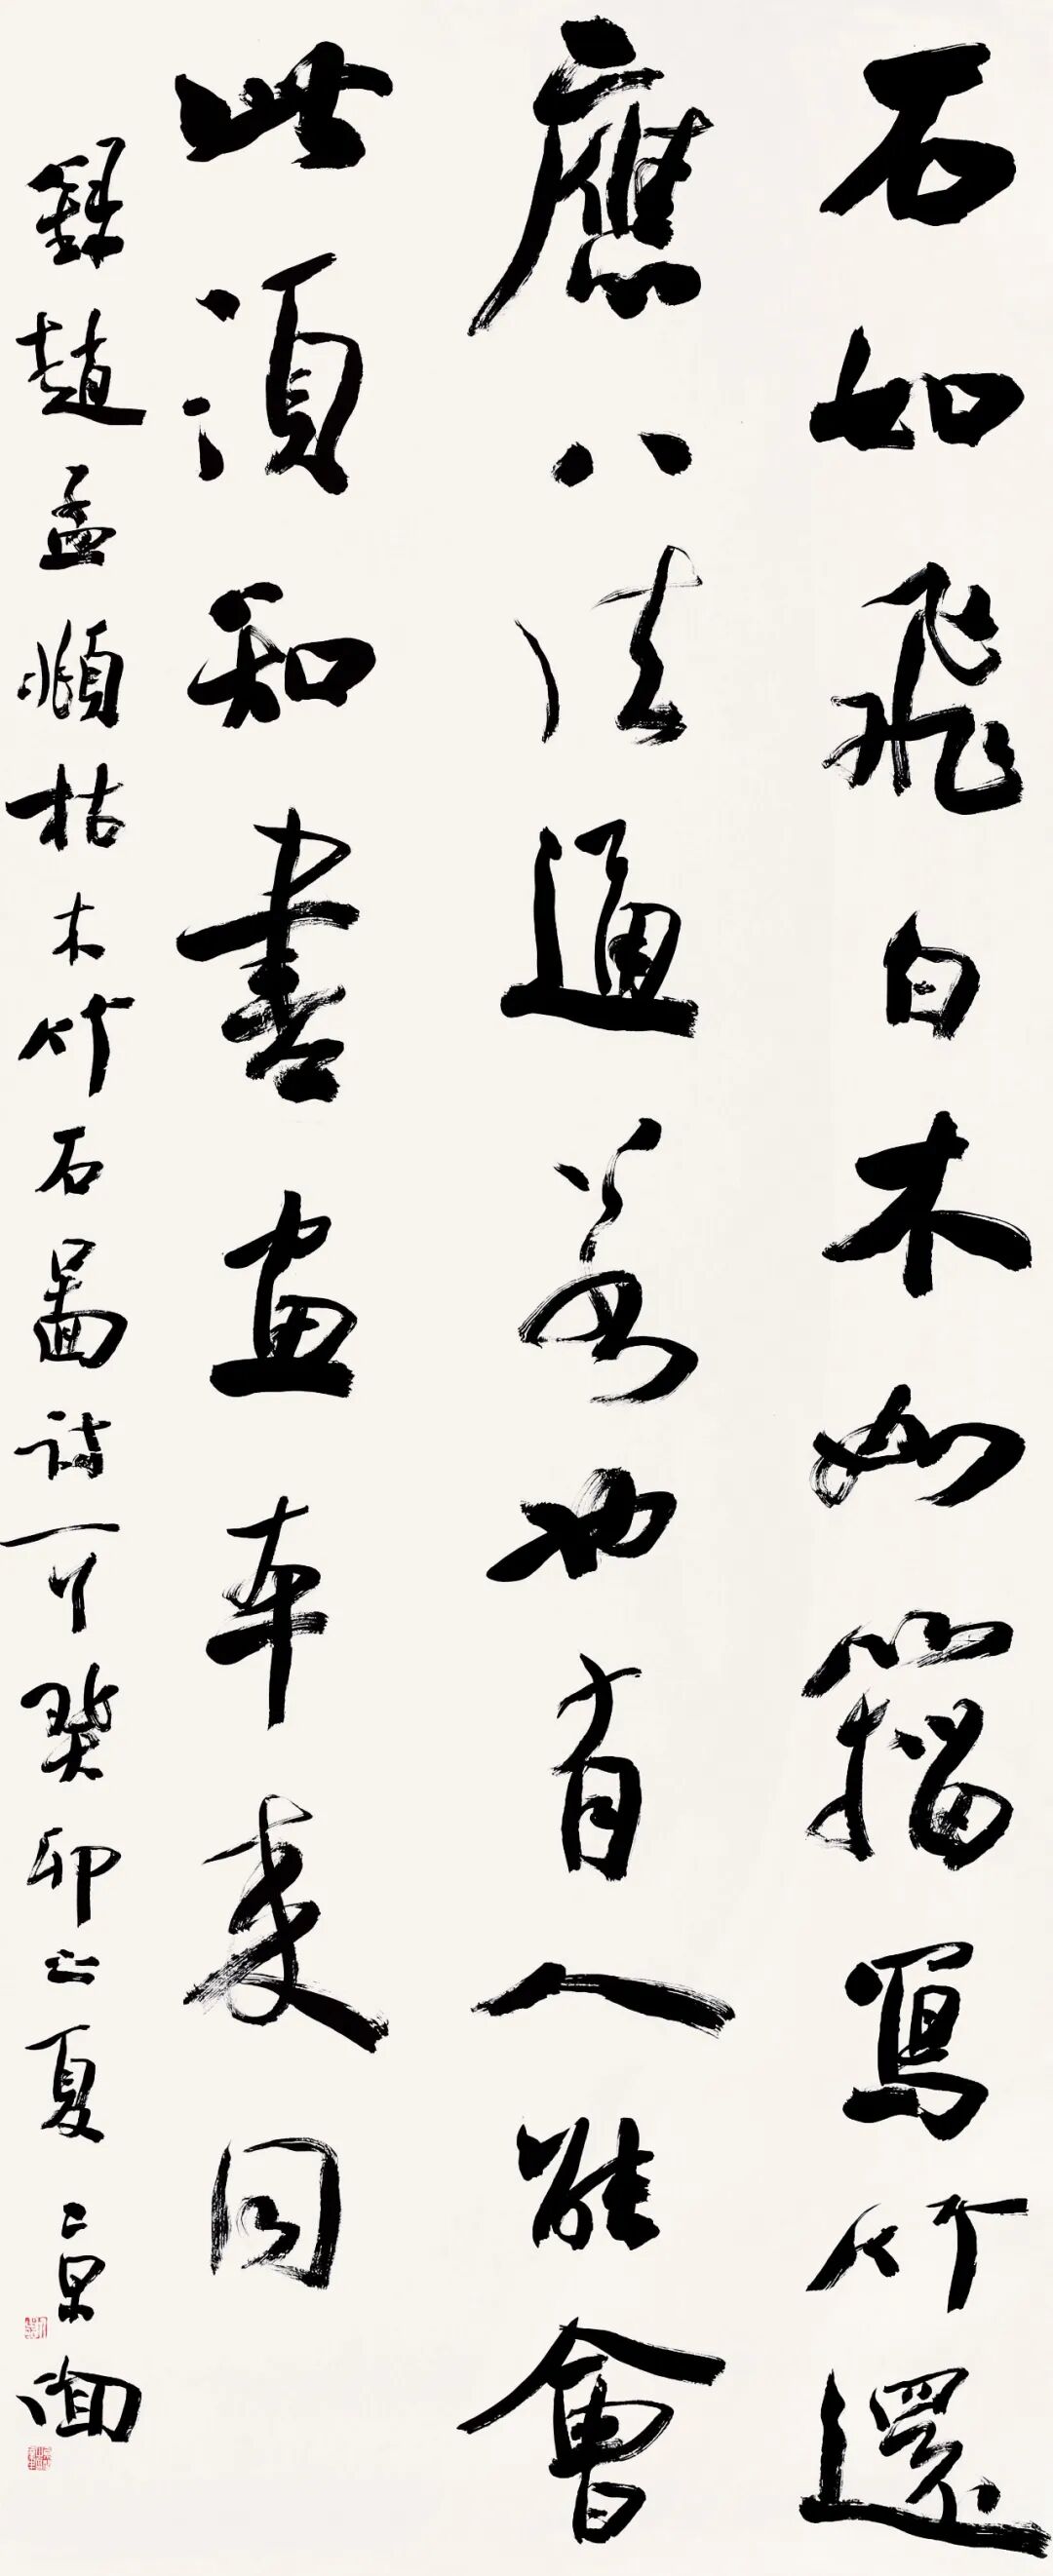 石如飛白木如籀寫竹還
應八法通若也有人能會
此須知書畫本來同
錄趙孟頫枯木竹石圖詩癸卯之夏